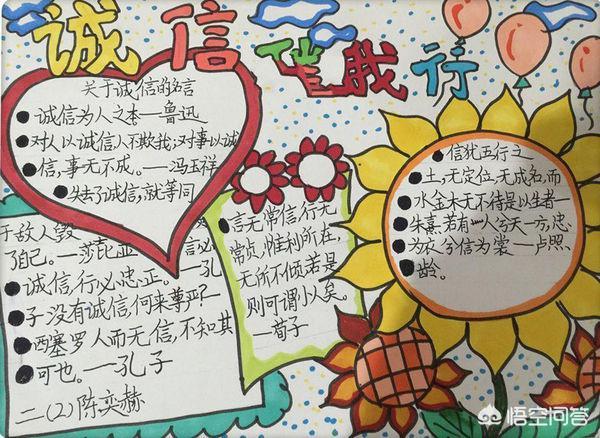 诚信伴我行
关于诚信的名言
诚信为人之本—鲁迅
对人以诚信人不欺我;对事以诚
信,事无不成。—冯玉祥
失去了诚信,就等同
于敌人毁
了自己。—莎士比亚
言必
诚信,行必忠正。—孔
子 没有诚信,何来尊严?—
西塞罗 人而无信,不知其
可也。—孔子
二(2) 陈奕赫
言无常信,行无
常贞,惟利所在,
无所不倾,若是
则可谓小人矣。
—荀子
信犹五行之
土,无定位,无成名,而
水金木无不待是以生者—
朱熹 若有人兮天一方,忠
为衣兮信为裳—卢照
龄。
悟空问答